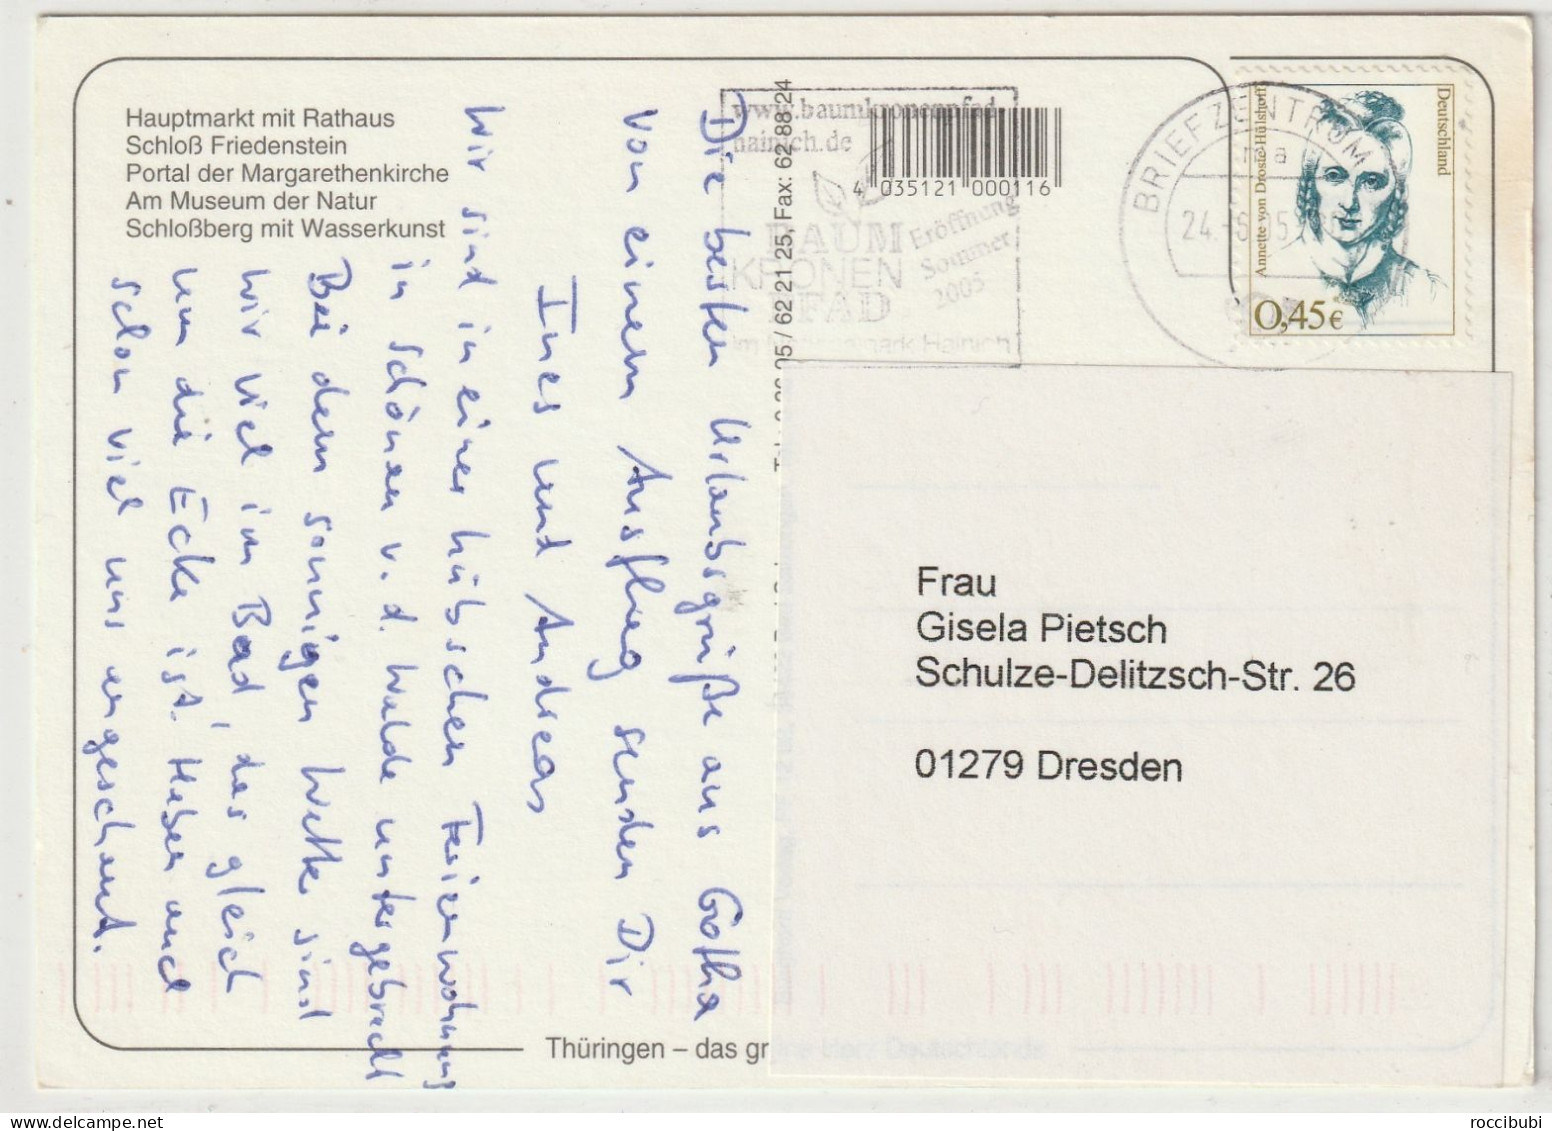 Hauptmarkt mit Rathaus
Schloß Friedenstein
Portal der Margarethenkirche
Am Museum der Natur
Schloßberg mit Wasserkunst
Die besten Urlaubsgrüße aus Gotha
von einem Ausflug senden Dir
Ines und Andreas
Wir sind in einer hübschen Ferienwohnung
in Schönau v. d. Walde untergebracht
Bei dem sonnigen Wetter sind
wir viel im Bad, das gleich
um die Ecke ist. Haben auch
schon viel uns angeschaut.
62 21 25, Fax: 62 88 24
www.baumkronenpfad-
hainich.de
BAUM
KRONEN
PFAD
Eröffnung
Sommer
2005
im Nationalpark Hainich
4 035121 000116
BRIEFZENTRUM
24.
Deutschland
Annette von Droste-Hülshoff
0,45€
Frau
Gisela Pietsch
Schulze-Delitzsch-Str. 26
01279 Dresden
Thüringen – das grüne Herz Deutschlands
roccibubi